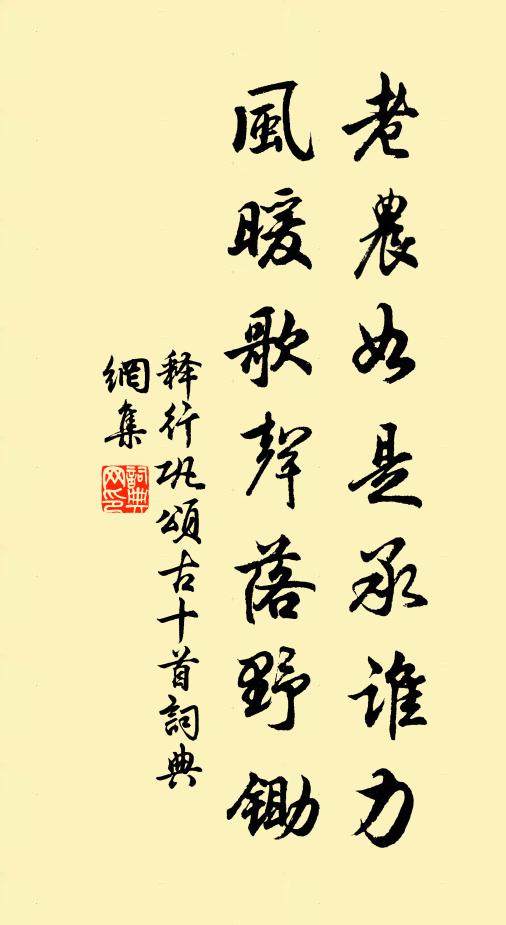 老農如是承誰力
風暖歌聲落野鋤
释行巩頌古十首詞典
網集
詞典網印